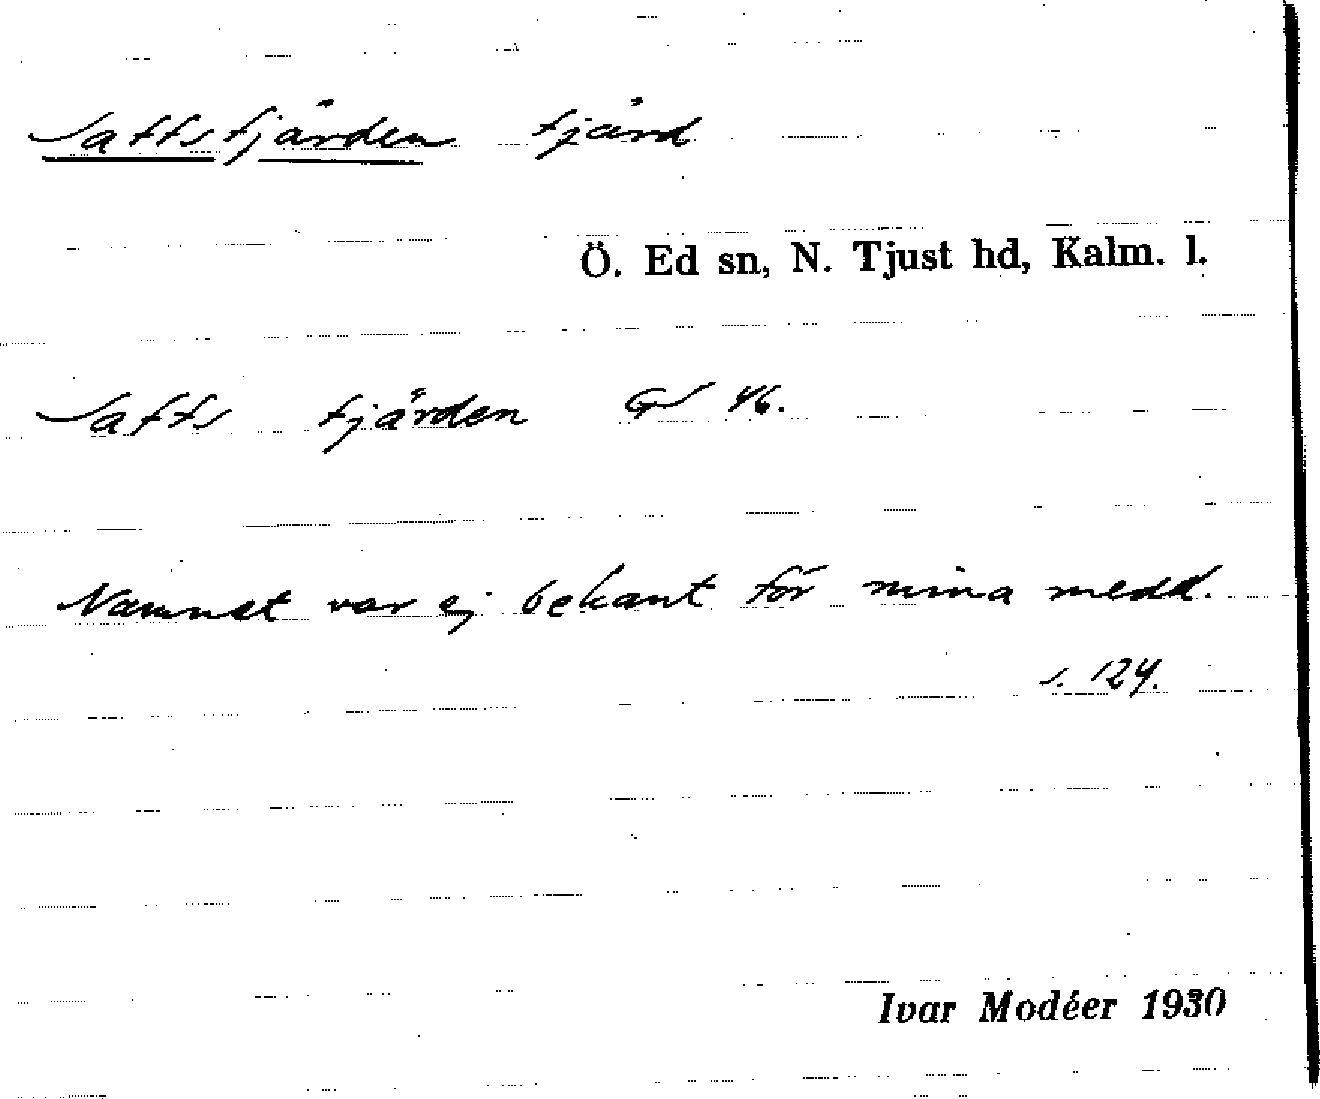 Saltsfjärden fjärd
Ö. Ed sn, N. Tjust hd, Kalm. l.
fjärden GS 46.
Namnet var ej bekant för mina medd.
s. 124.
Ivar Modéer 1930